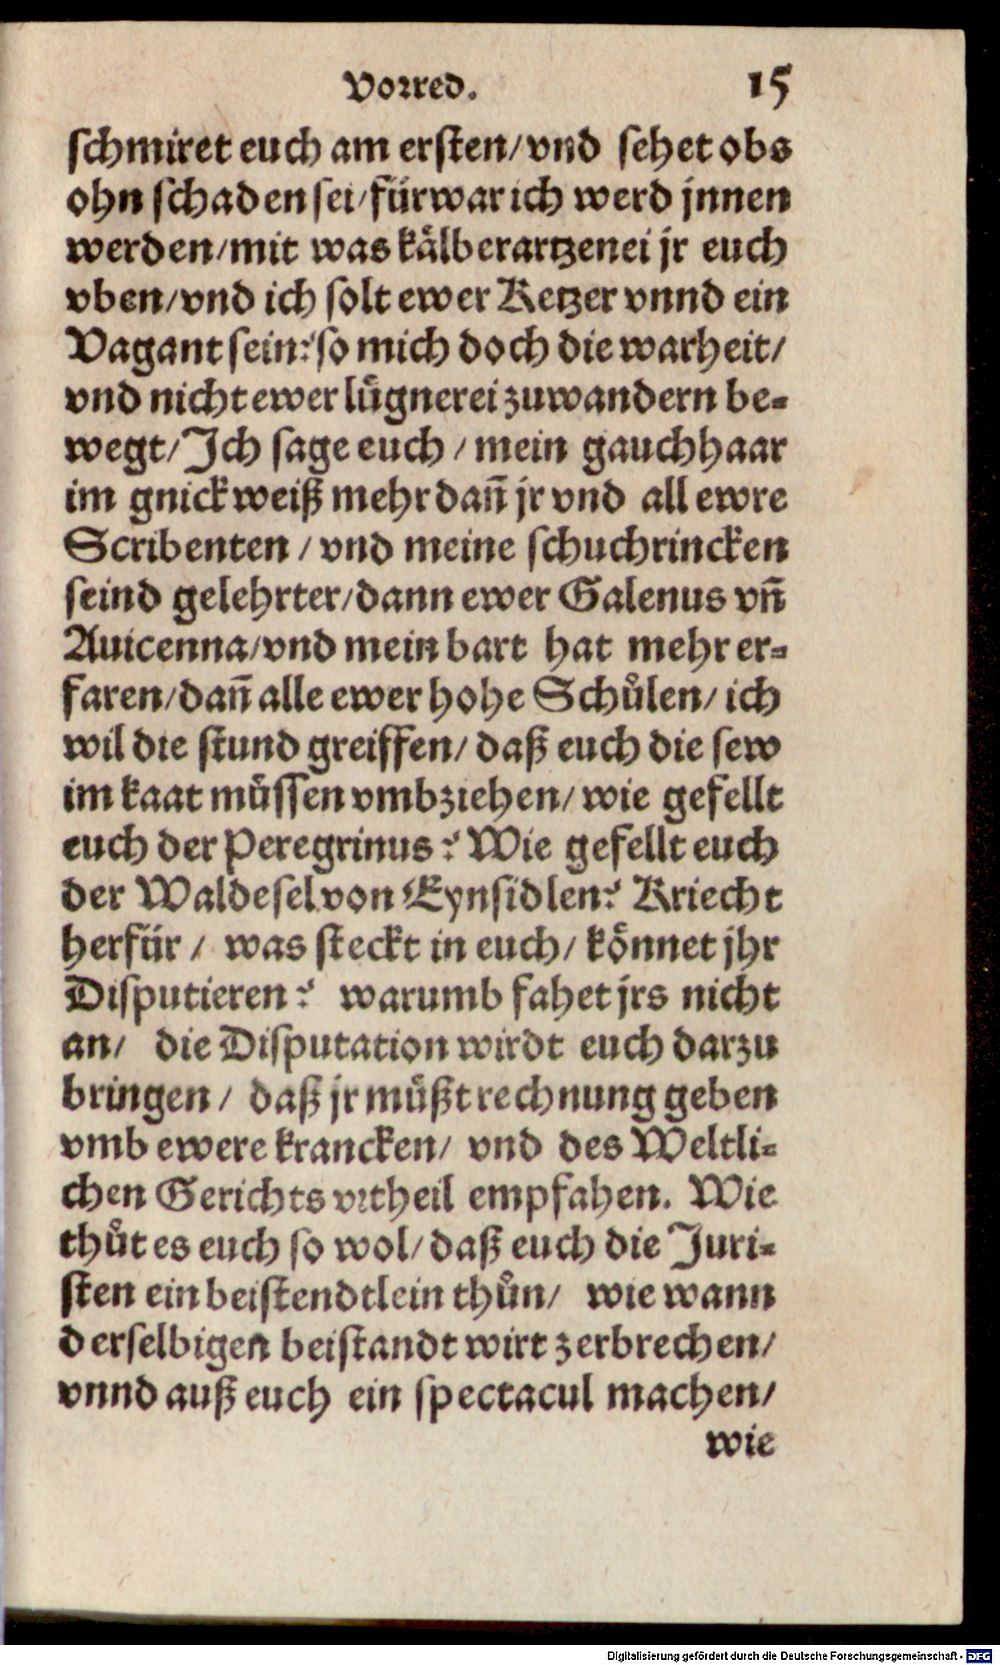 Vorred. 15
schmiret euch am ersten/ vnd sehet obs
ohn schaden sei/ fürwar ich werd jnnen
werden/ mit was kaͤlberartzenei jr euch
vben/ vnd ich solt ewer Ketzer vnnd ein
Vagant sein? so mich doch die warheit/
vnd nicht ewer luͤgnerei zuwandern be-
wegt/ Ich sage euch / mein gauchhaar
im gnick weiß mehr dañ jr vnd all ewre
Scribenten / vnd meine schuchrincken
seind gelehrter/ dann ewer Galenus vñ
Auicenna/ vnd mein bart hat mehr er-
faren/ dañ alle ewer hohe Schuͦlen/ ich
wil die stund greiffen/ daß euch die sew
im kaat muͤssen vmbziehen/ wie gefellt
euch der Peregrinus? Wie gefellt euch
der Waldesel von Eynsidlen? Kriecht
herfür / was steckt in euch/ koͤnnet jhr
Disputieren? warumb fahet jrs nicht
an/ die Disputation wirdt euch darzu
bringen / daß jr muͤßt rechnung geben
vmb ewere krancken/ vnd des Weltli-
chen Gerichts vrtheil empfahen. Wie
thuͦt es euch so wol/ daß euch die Juri-
sten ein beistendtlein thuͦn/ wie wann
derselbigen beistandt wirt zerbrechen/
vnnd auß euch ein spectacul machen/
wie
Digitalisierung gefördert durch die Deutsche Forschungsgemeinschaft - DFG